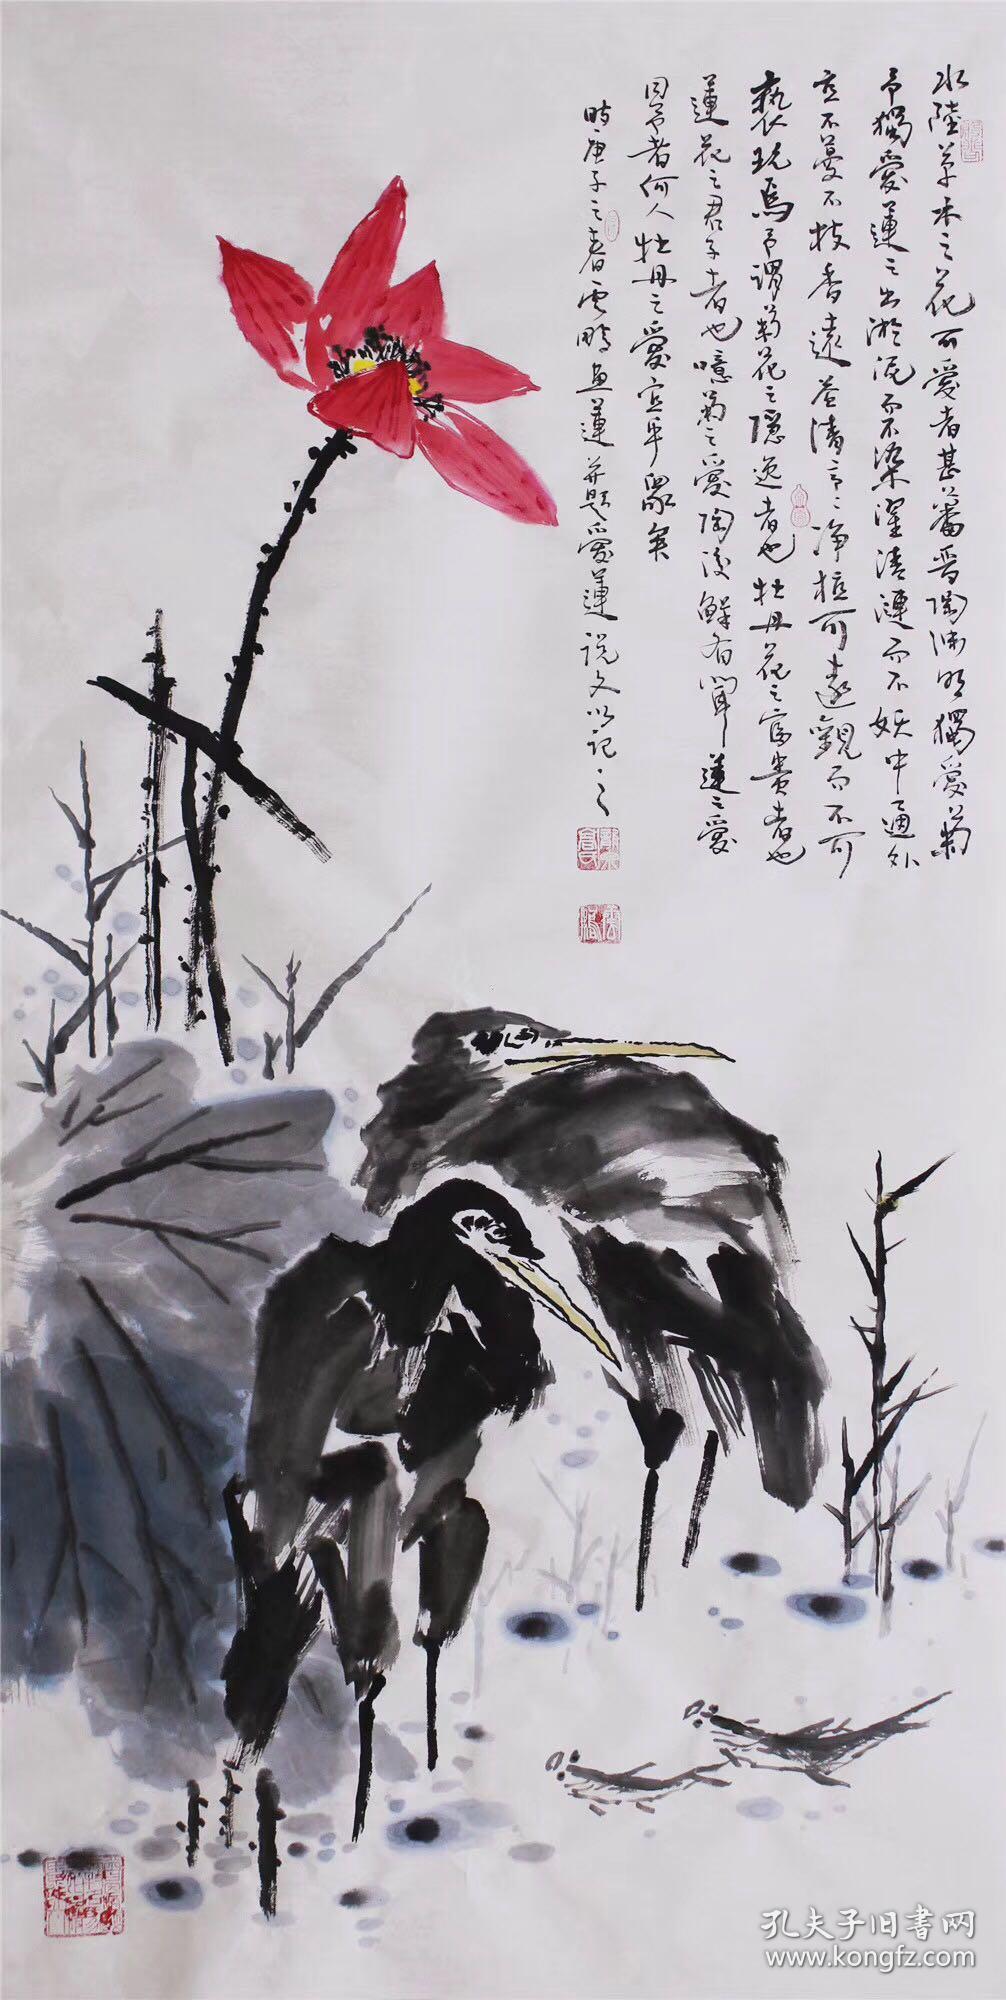 水陸草木之花可愛者甚蕃晉陶渊明獨愛菊
予獨愛蓮之出淤泥而不染濯清漣而不妖中通外
直不蔓不枝香遠益清亭ミ净植可遠觀而不可
褻玩焉予謂菊花之隱逸者也牡丹花之富贵者也
蓮花之君子者也噫菊之愛陶後鮮有聞蓮之愛
同予者何人牡丹之愛宜乎眾矣
時庚子之春雲鵬画蓮并題愛蓮説文以記之
孔夫子旧書网
www.kongfz.com